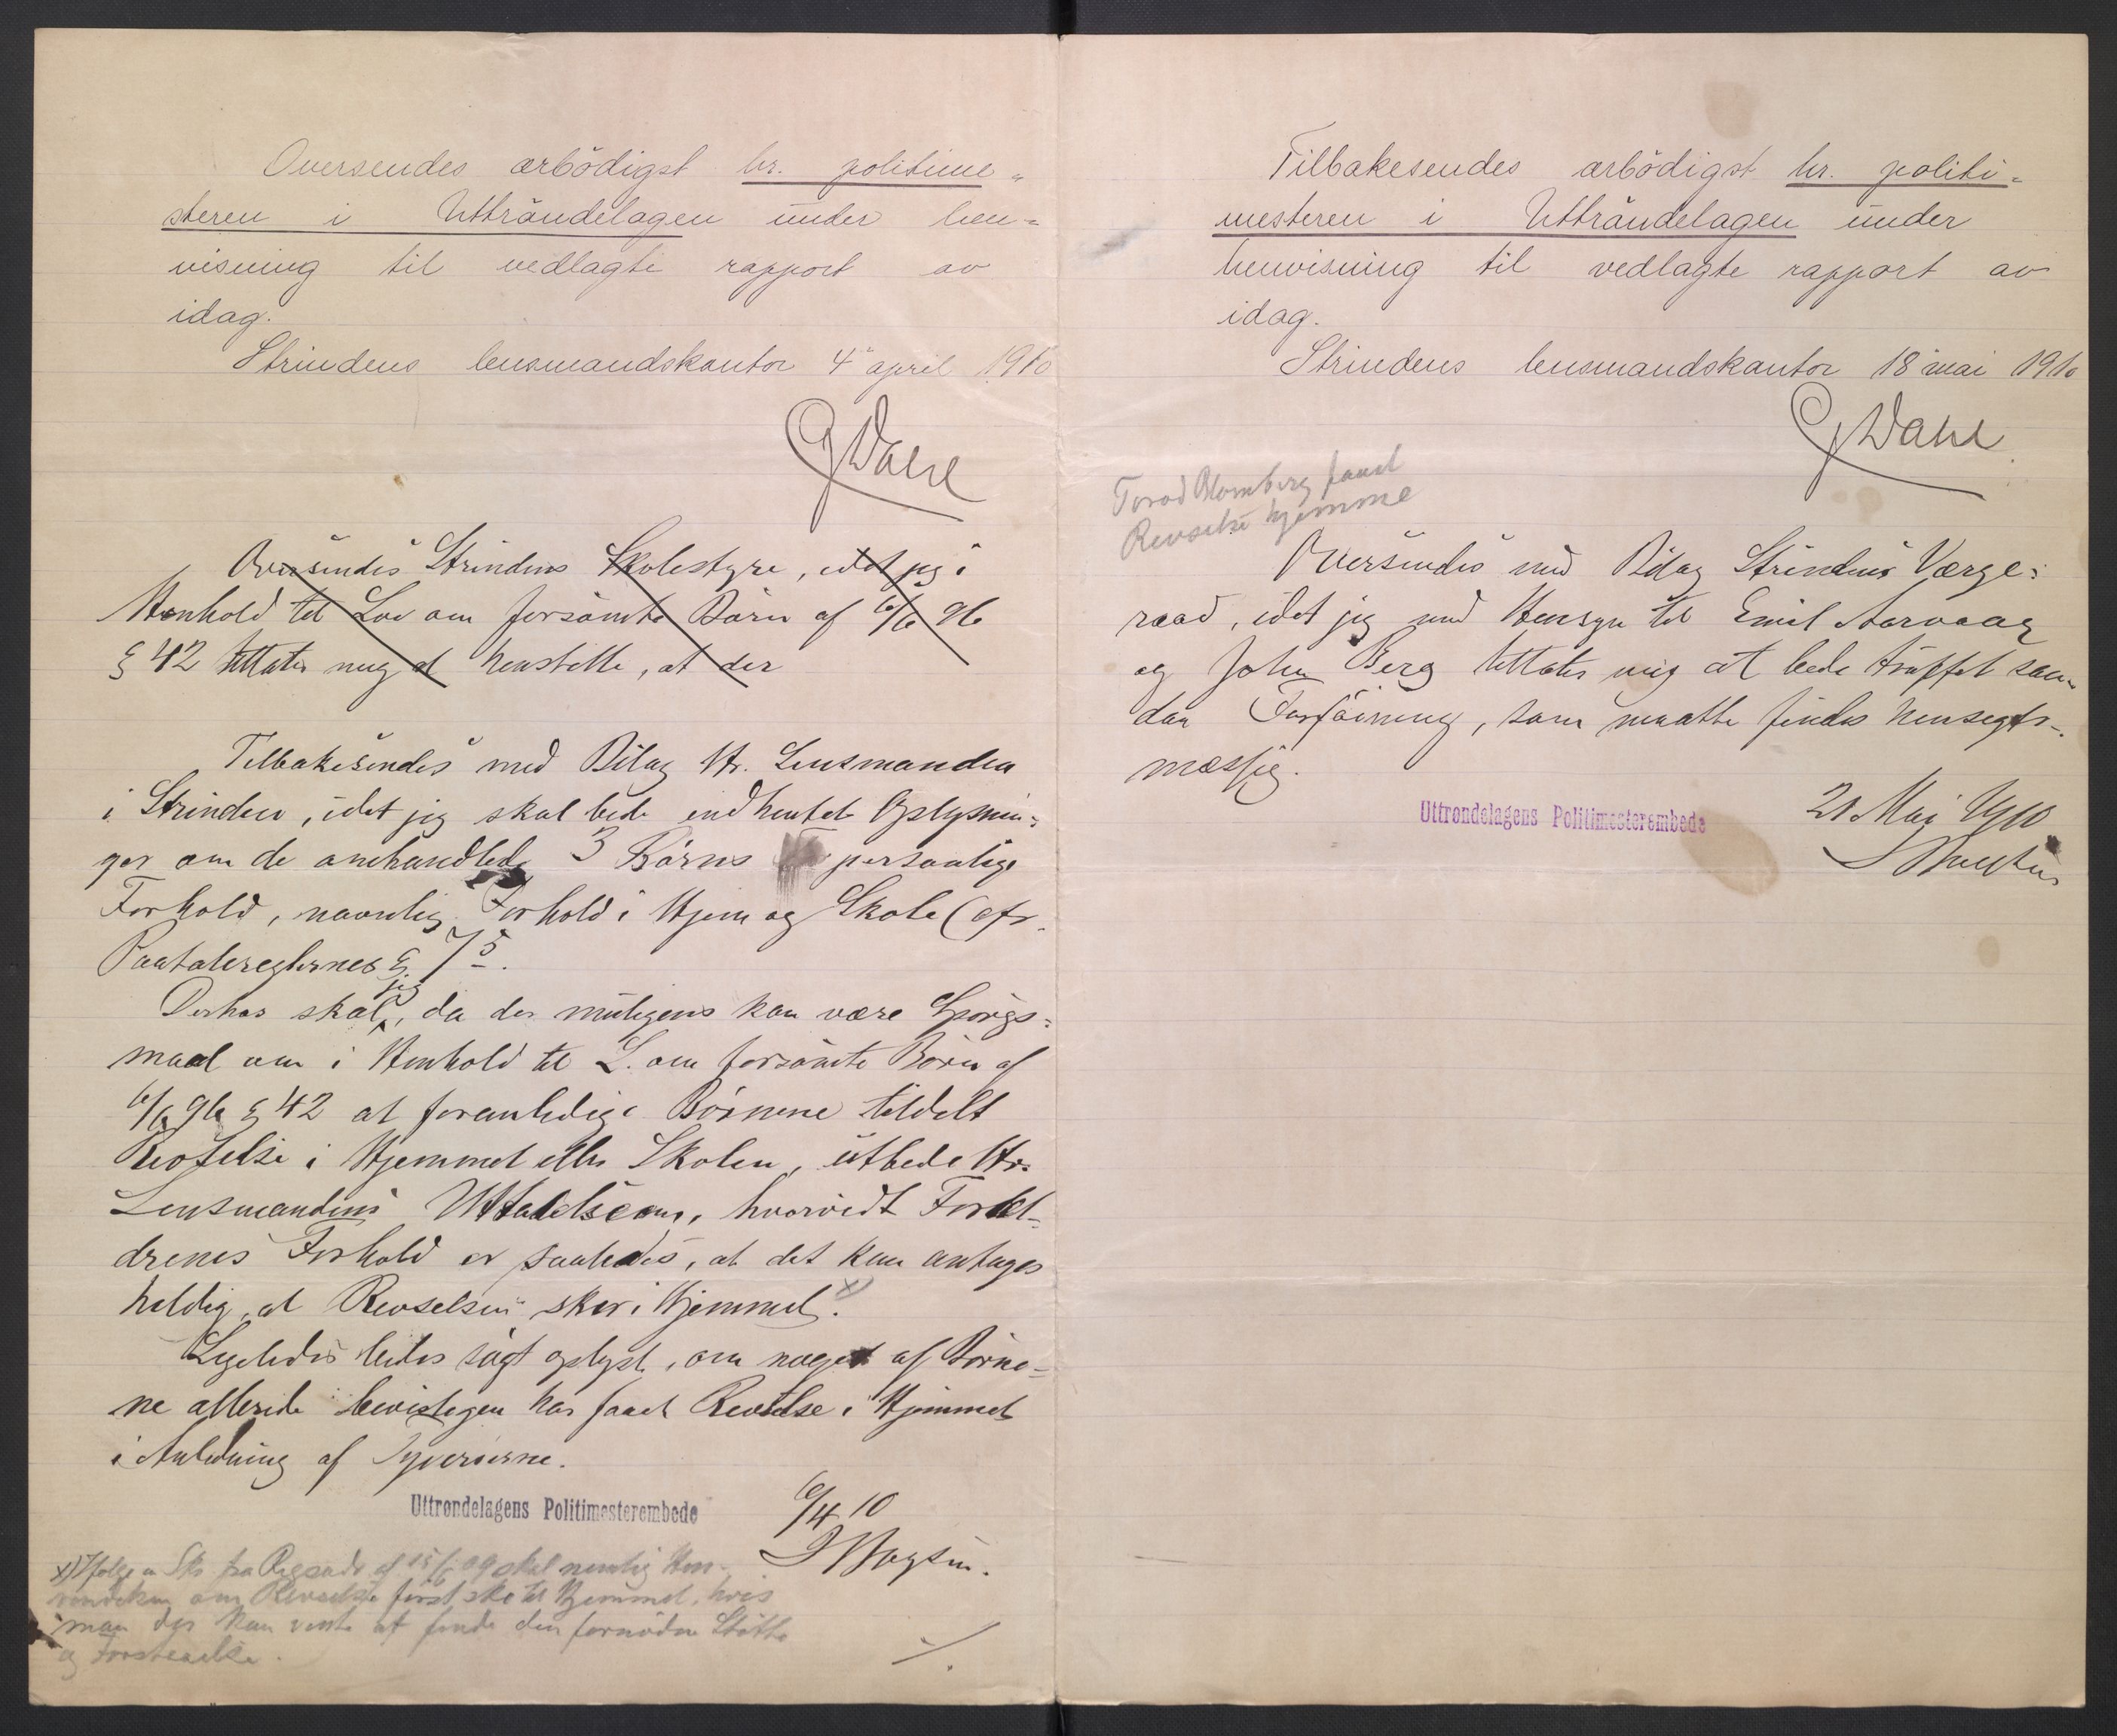 Oversendes ærbödigst hr. politime-
steren i Uttröndelagen under hen-
visning til vedlagte rapport av
idag.
Strindens lensmandskontor 4' april 1910
G Dahl
Oversendes Strindens Skolestyre, idet jeg i
Henhold til Lov om forsömte Börn af 6/6 96
§ 42 tillater mig at henstille, at der
Tilbakesendes med Bilag Hr. Lensmanden
i Strinden, idet jeg skal bede indhentet Oplysnin-
ger om de omhandlede 3 Börns personlige
Forhold, navnlig Forhold i Hjem og Skole (cfr.
Paatalereglernes § 75.
Derhos skal jeg, da der muligens kan være Spörgs-
maal om i Henhold til L. om forsömte Börn af
6/6 96 § 42 at foranledige Börnene tildelt
Revselse i Hjemmet eller Skolen, utbede Hr.
Lensmandens Uttalelse om, hvorvidt Foræl-
drenes Forhold er saaledes, at det kan antages
heldig, at Revselsen sker i Hjemmet. x)
Ligeledes bedes sögt oplyst, om noget af Börne-
ne allerede bevisligen har faaet Revselse i Hjemmet
i Anledning af Tyverierne.
Uttrøndelagens Politimesterembede
6/4 10
x) Ifølge Skr. fra Rigsadv. af 15/6 09 skal nemlig Hen-
vendelsen om Revselse först ske til Hjemmet, hvis
man der kan vente at finde den fornödne Stötte
og Forstaaelse.
./.
Tilbakesendes ærbödigst hr. politi-
mesteren i Uttröndelagen under
henvisning til vedlagte rapport av
idag.
Strindens lensmandskontor 18' mai 1910
G Dahl
Torod Blomberg faaet
Revselse hjemme
Oversendes med Bilag Strindens Værge-
raad, idet jeg med Hensyn til Emil Aarvaag
og John Berg tillater mig at bede truffet saa-
dan Forföining, som maatte findes hensigts-
mæssig.
Uttrøndelagens Politimesterembede
21 Mai 1910